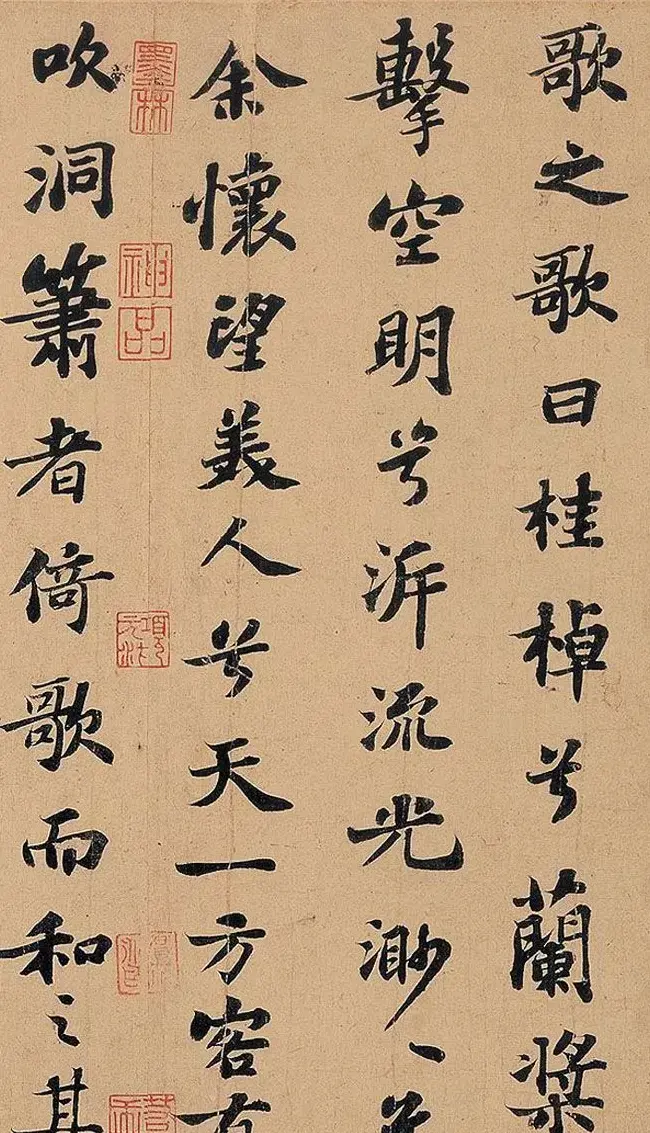 歌之歌曰桂棹兮蘭槳
擊空明兮泝流光渺〻兮
余懷望美人兮天一方客有
吹洞簫者倚歌而和之其
墨林
神品